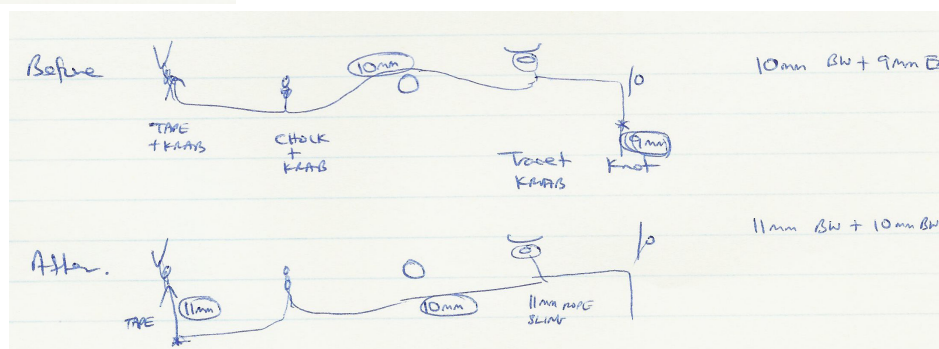 Before
10mm
10mm BW + 9mm B
TAPE
+ KRAB
CHOCK
+
KRAB
KRAB
9mm
Knot
After.
11mm BW + 10mm BW
TAPE
11mm
10mm
11mm ROPE
SLING